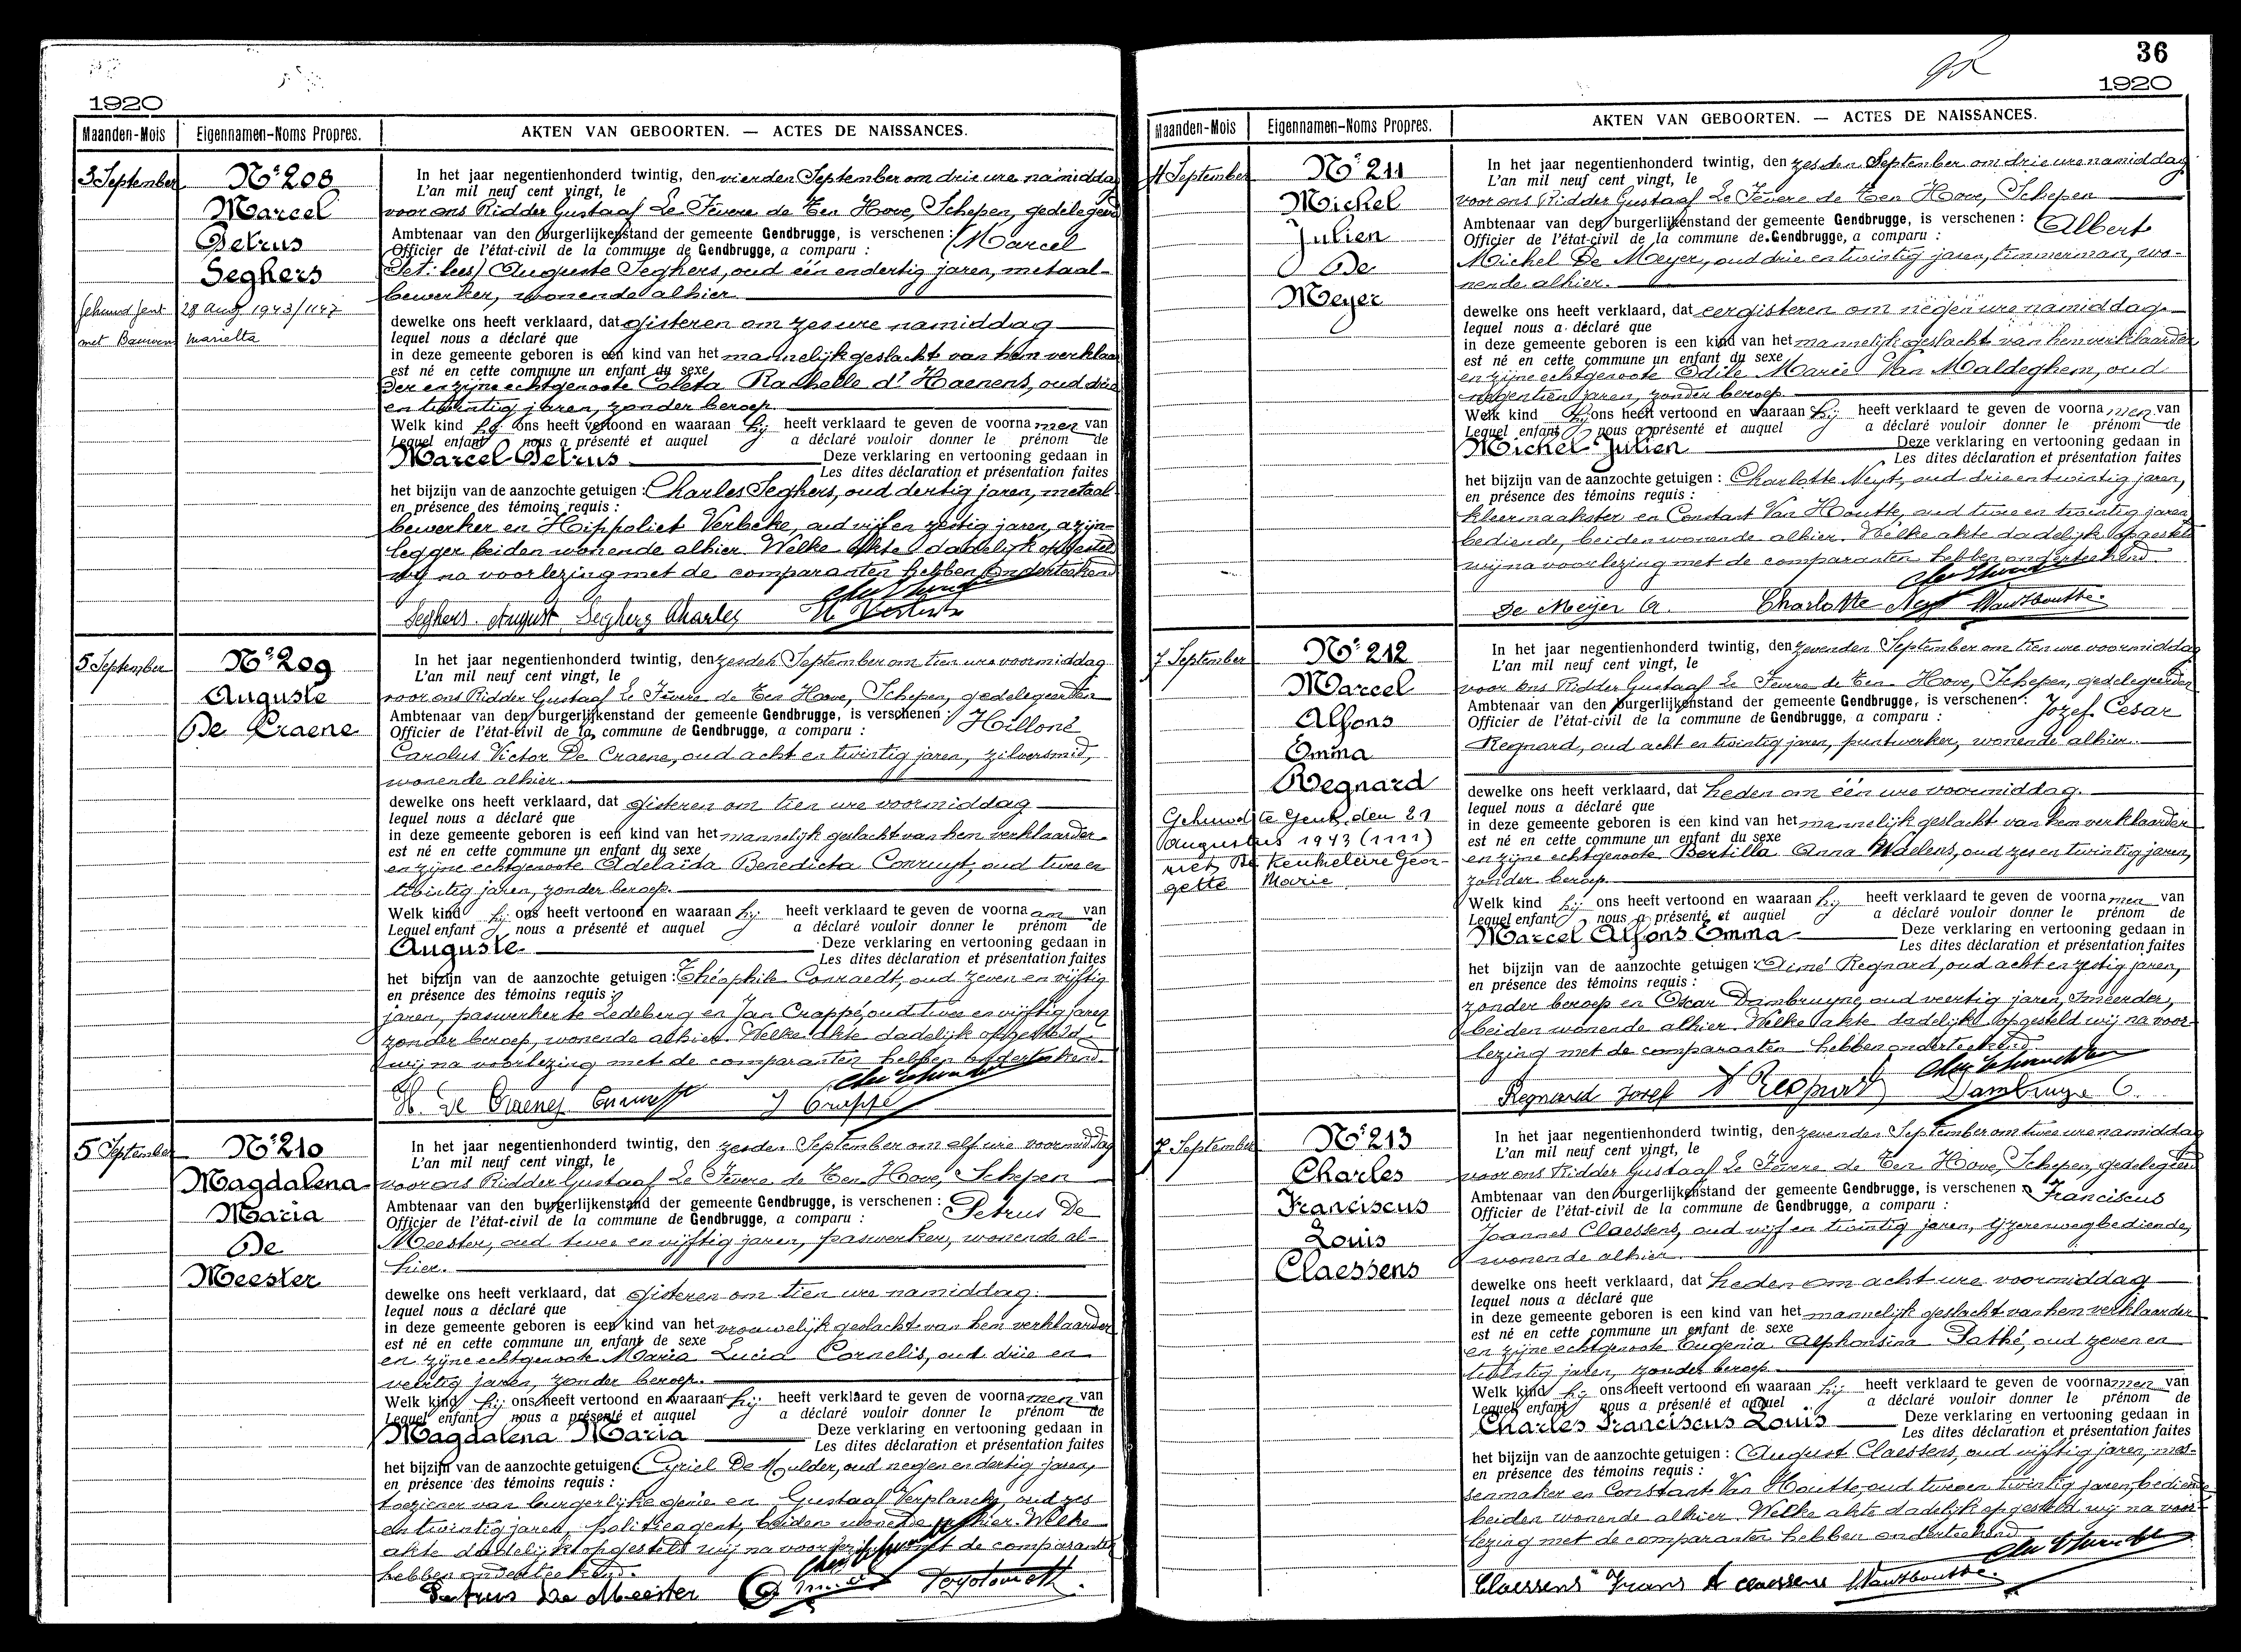 1920
Maanden-Mois Eigennamen-Noms Propres. AKTEN VAN GEBOORTEN. — ACTES DE NAISSANCES.
3 September
Nº 208
Marcel
Petrus
Seghers
28 Aug 1943/1147
met Bauwens Mariette
In het jaar negentienhonderd twintig, den vierden September om drie ure namiddag
L'an mil neuf cent vingt, le
voor ons Ridder Gustaaf Le Fèvere de Ten Hove, Schepen, gedelegeerd
Ambtenaar van den burgerlijkenstand der gemeente Gendbrugge, is verschenen : (Marcel
Officier de l'état-civil de la commune de Gendbrugge, a comparu :
Pet: lees) Auguste Seghers, oud één en dertig jaren, metaal-
bewerker, wonende alhier.
dewelke ons heeft verklaard, dat gisteren om zes ure namiddag
lequel nous a déclaré que
in deze gemeente geboren is een kind van het mannelijk geslacht van hem verklaar
est né en cette commune un enfant du sexe
der en zijne echtgenoote Coleta Rachelle d'Haenens, oud drie
en twintig jaren, zonder beroep.
Welk kind hij ons heeft vertoond en waaraan hij heeft verklaard te geven de voorna men van
Lequel enfant nous a présenté et auquel a déclaré vouloir donner le prénom de
Marcel Petrus Deze verklaring en vertooning gedaan in
Les dites déclaration et présentation faites
het bijzijn van de aanzochte getuigen : Charles Seghers, oud dertig jaren, metaal
en présence des témoins requis :
bewerker en Hippoliet Verbeke, oud vijf en zestig jaren, azijn-
legger beiden wonende alhier. Welke akte dadelijk opgesteld
wij na voorlezing met de comparanten hebben onderteekend
Seghers August Seghers Charles
5 September
Nº 209
Auguste
De Craene
In het jaar negentienhonderd twintig, den zesden September om tien ure voormiddag
L'an mil neuf cent vingt, le
voor ons Ridder Gustaaf Le Fèvere de Ten Hove, Schepen, gedelegeerden
Ambtenaar van den burgerlijkenstand der gemeente Gendbrugge, is verschenen : Hilloné
Officier de l'état-civil de la commune de Gendbrugge, a comparu :
Carolus Victor De Craene, oud acht en twintig jaren, zilversmid,
wonende alhier.
dewelke ons heeft verklaard, dat gisteren om tien ure voormiddag
lequel nous a déclaré que
in deze gemeente geboren is een kind van het mannelijk geslacht van hem verklaarder
est né en cette commune un enfant du sexe
en zijne echtgenoote Adelaïda Benedicta Conruyt, oud twee en
twintig jaren, zonder beroep.
Welk kind hij ons heeft vertoond en waaraan hij heeft verklaard te geven de voorna am van
Lequel enfant nous a présenté et auquel a déclaré vouloir donner le prénom de
Auguste Deze verklaring en vertooning gedaan in
Les dites déclaration et présentation faites
het bijzijn van de aanzochte getuigen : Théophile Conraedt, oud zeven en vijftig
en présence des témoins requis :
jaren, paswerker te Ledeberg en Jan Crappé, oud twee en vijftig jaren
zonder beroep, wonende alhier. Welke akte dadelijk opgesteld
wij na voorlezing met de comparanten hebben onderteekend.
H. De Craene J Crappé
5 September
Nº 210
Magdalena
Maria
De
Meester
In het jaar negentienhonderd twintig, den zesden September om elf ure voormiddag
L'an mil neuf cent vingt, le
voor ons Ridder Gustaaf Le Fèvere de Ten Hove, Schepen
Ambtenaar van den burgerlijkenstand der gemeente Gendbrugge, is verschenen : Petrus De
Officier de l'état-civil de la commune de Gendbrugge, a comparu :
Meester, oud twee en vijftig jaren, paswerker, wonende al-
hier.
dewelke ons heeft verklaard, dat gisteren om tien ure namiddag.
lequel nous a déclaré que
in deze gemeente geboren is een kind van het vrouwelijk geslacht van hem verklaarder
est né en cette commune un enfant de sexe
en zijne echtgenoote Maria Lucia Cornelis, oud drie en
veertig jaren, zonder beroep.
Welk kind hij ons heeft vertoond en waaraan hij heeft verklaard te geven de voorna men van
Lequel enfant nous a présenté et auquel a déclaré vouloir donner le prénom de
Magdalena Maria Deze verklaring en vertooning gedaan in
Les dites déclaration et présentation faites
het bijzijn van de aanzochte getuigen : Cyriel De Mulder, oud negen en dertig jaren,
en présence des témoins requis :
toeziener van burgerlijke genie en Gustaaf Verplancke, oud zes
en twintig jaren, politieagent, beiden wonende alhier. Welke
akte dadelijk opgesteld wij na voorlezing met de comparanten
hebben onderteekend.
Petrus De Meester
36
1920
Maanden-Mois Eigennamen-Noms Propres. AKTEN VAN GEBOORTEN. — ACTES DE NAISSANCES.
4 September
Nº 211
Michel
Julien
De
Meyer
In het jaar negentienhonderd twintig, den zesden September om drie ure namiddag
L'an mil neuf cent vingt, le
voor ons Ridder Gustaaf Le Fèvere de Ten Hove, Schepen
Ambtenaar van den burgerlijkenstand der gemeente Gendbrugge, is verschenen : Albert
Officier de l'état-civil de la commune de Gendbrugge, a comparu :
Michel De Meyer, oud drie en twintig jaren, timmerman, wo-
nende alhier.
dewelke ons heeft verklaard, dat eergisteren om negen ure namiddag.
lequel nous a déclaré que
in deze gemeente geboren is een kind van het mannelijk geslacht van hem verklaarder
est né en cette commune un enfant du sexe
en zijne echtgenoote Odile Marie Van Maldeghem, oud
negentien jaren, zonder beroep.
Welk kind hij ons heeft vertoond en waaraan hij heeft verklaard te geven de voorna men van
Lequel enfant nous a présenté et auquel a déclaré vouloir donner le prénom de
Michel Julien Deze verklaring en vertooning gedaan in
Les dites déclaration et présentation faites
het bijzijn van de aanzochte getuigen : Charlotte Neyt, oud drie en twintig jaren,
en présence des témoins requis :
kleermaakster en Constant Van Houtte, oud twee en twintig jaren
bediende, beiden wonende alhier. Welke akte dadelijk opgesteld
wij na voorlezing met de comparanten hebben onderteekend.
De Meÿer A. Charlotte Neyt
7 September
Nº 212
Marcel
Alfons
Emma
Regnard
Gehuwd te Gent, den 21
augustus 1943 (1111)
met De Keukeleire Geor-
gette Marie
In het jaar negentienhonderd twintig, den zevenden September om tien ure voormiddag
L'an mil neuf cent vingt, le
voor ons Ridder Gustaaf Le Fèvere de Ten Hove, Schepen, gedelegeerden
Ambtenaar van den burgerlijkenstand der gemeente Gendbrugge, is verschenen : Jozef Cesar
Officier de l'état-civil de la commune de Gendbrugge, a comparu :
Regnard, oud acht en twintig jaren, puntwerker, wonende alhier.
dewelke ons heeft verklaard, dat heden om één ure voormiddag.
lequel nous a déclaré que
in deze gemeente geboren is een kind van het mannelijk geslacht van hem verklaarder
est né en cette commune un enfant du sexe
en zijne echtgenoote Bertilla Anna Waelens, oud zes en twintig jaren,
zonder beroep.
Welk kind hij ons heeft vertoond en waaraan hij heeft verklaard te geven de voorna men van
Lequel enfant nous a présenté et auquel a déclaré vouloir donner le prénom de
Marcel Alfons Emma Deze verklaring en vertooning gedaan in
Les dites déclaration et présentation faites
het bijzijn van de aanzochte getuigen : Aimé Regnard, oud acht en zestig jaren,
en présence des témoins requis :
zonder beroep en Oscar Dambruyne, oud veertig jaren, smeerder,
beiden wonende alhier. Welke akte dadelijk opgesteld wij na voor-
lezing met de comparanten hebben onderteekend.
Regnard Jozef A Regnard Dambruyne O.
7 September
Nº 213
Charles
Franciscus
Louis
Claessens
In het jaar negentienhonderd twintig, den zevenden September om twee ure namiddag
L'an mil neuf cent vingt, le
voor ons Ridder Gustaaf Le Fèvere de Ten Hove, Schepen, gedelegeerd
Ambtenaar van den burgerlijkenstand der gemeente Gendbrugge, is verschenen : Franciscus
Officier de l'état-civil de la commune de Gendbrugge, a comparu :
Joannes Claessens, oud vijf en twintig jaren, ijzerenwegbediende,
wonende alhier.
dewelke ons heeft verklaard, dat heden om acht ure voormiddag
lequel nous a déclaré que
in deze gemeente geboren is een kind van het mannelijk geslacht van hem verklaarder
est né en cette commune un enfant de sexe
en zijne echtgenoote Eugenia Alphonsina Pathé, oud zeven en
twintig jaren, zonder beroep.
Welk kind hij ons heeft vertoond en waaraan hij heeft verklaard te geven de voorna men van
Lequel enfant nous a présenté et auquel a déclaré vouloir donner le prénom de
Charles Franciscus Louis Deze verklaring en vertooning gedaan in
Les dites déclaration et présentation faites
het bijzijn van de aanzochte getuigen : August Claessens, oud vijftig jaren, mas-
en présence des témoins requis :
senmaker en Constant Van Houtte, oud twee en twintig jaren, bediende
beiden wonende alhier. Welke akte dadelijk opgesteld wij na voor-
lezing met de comparanten hebben onderteekend
Claessens Frans A claessens